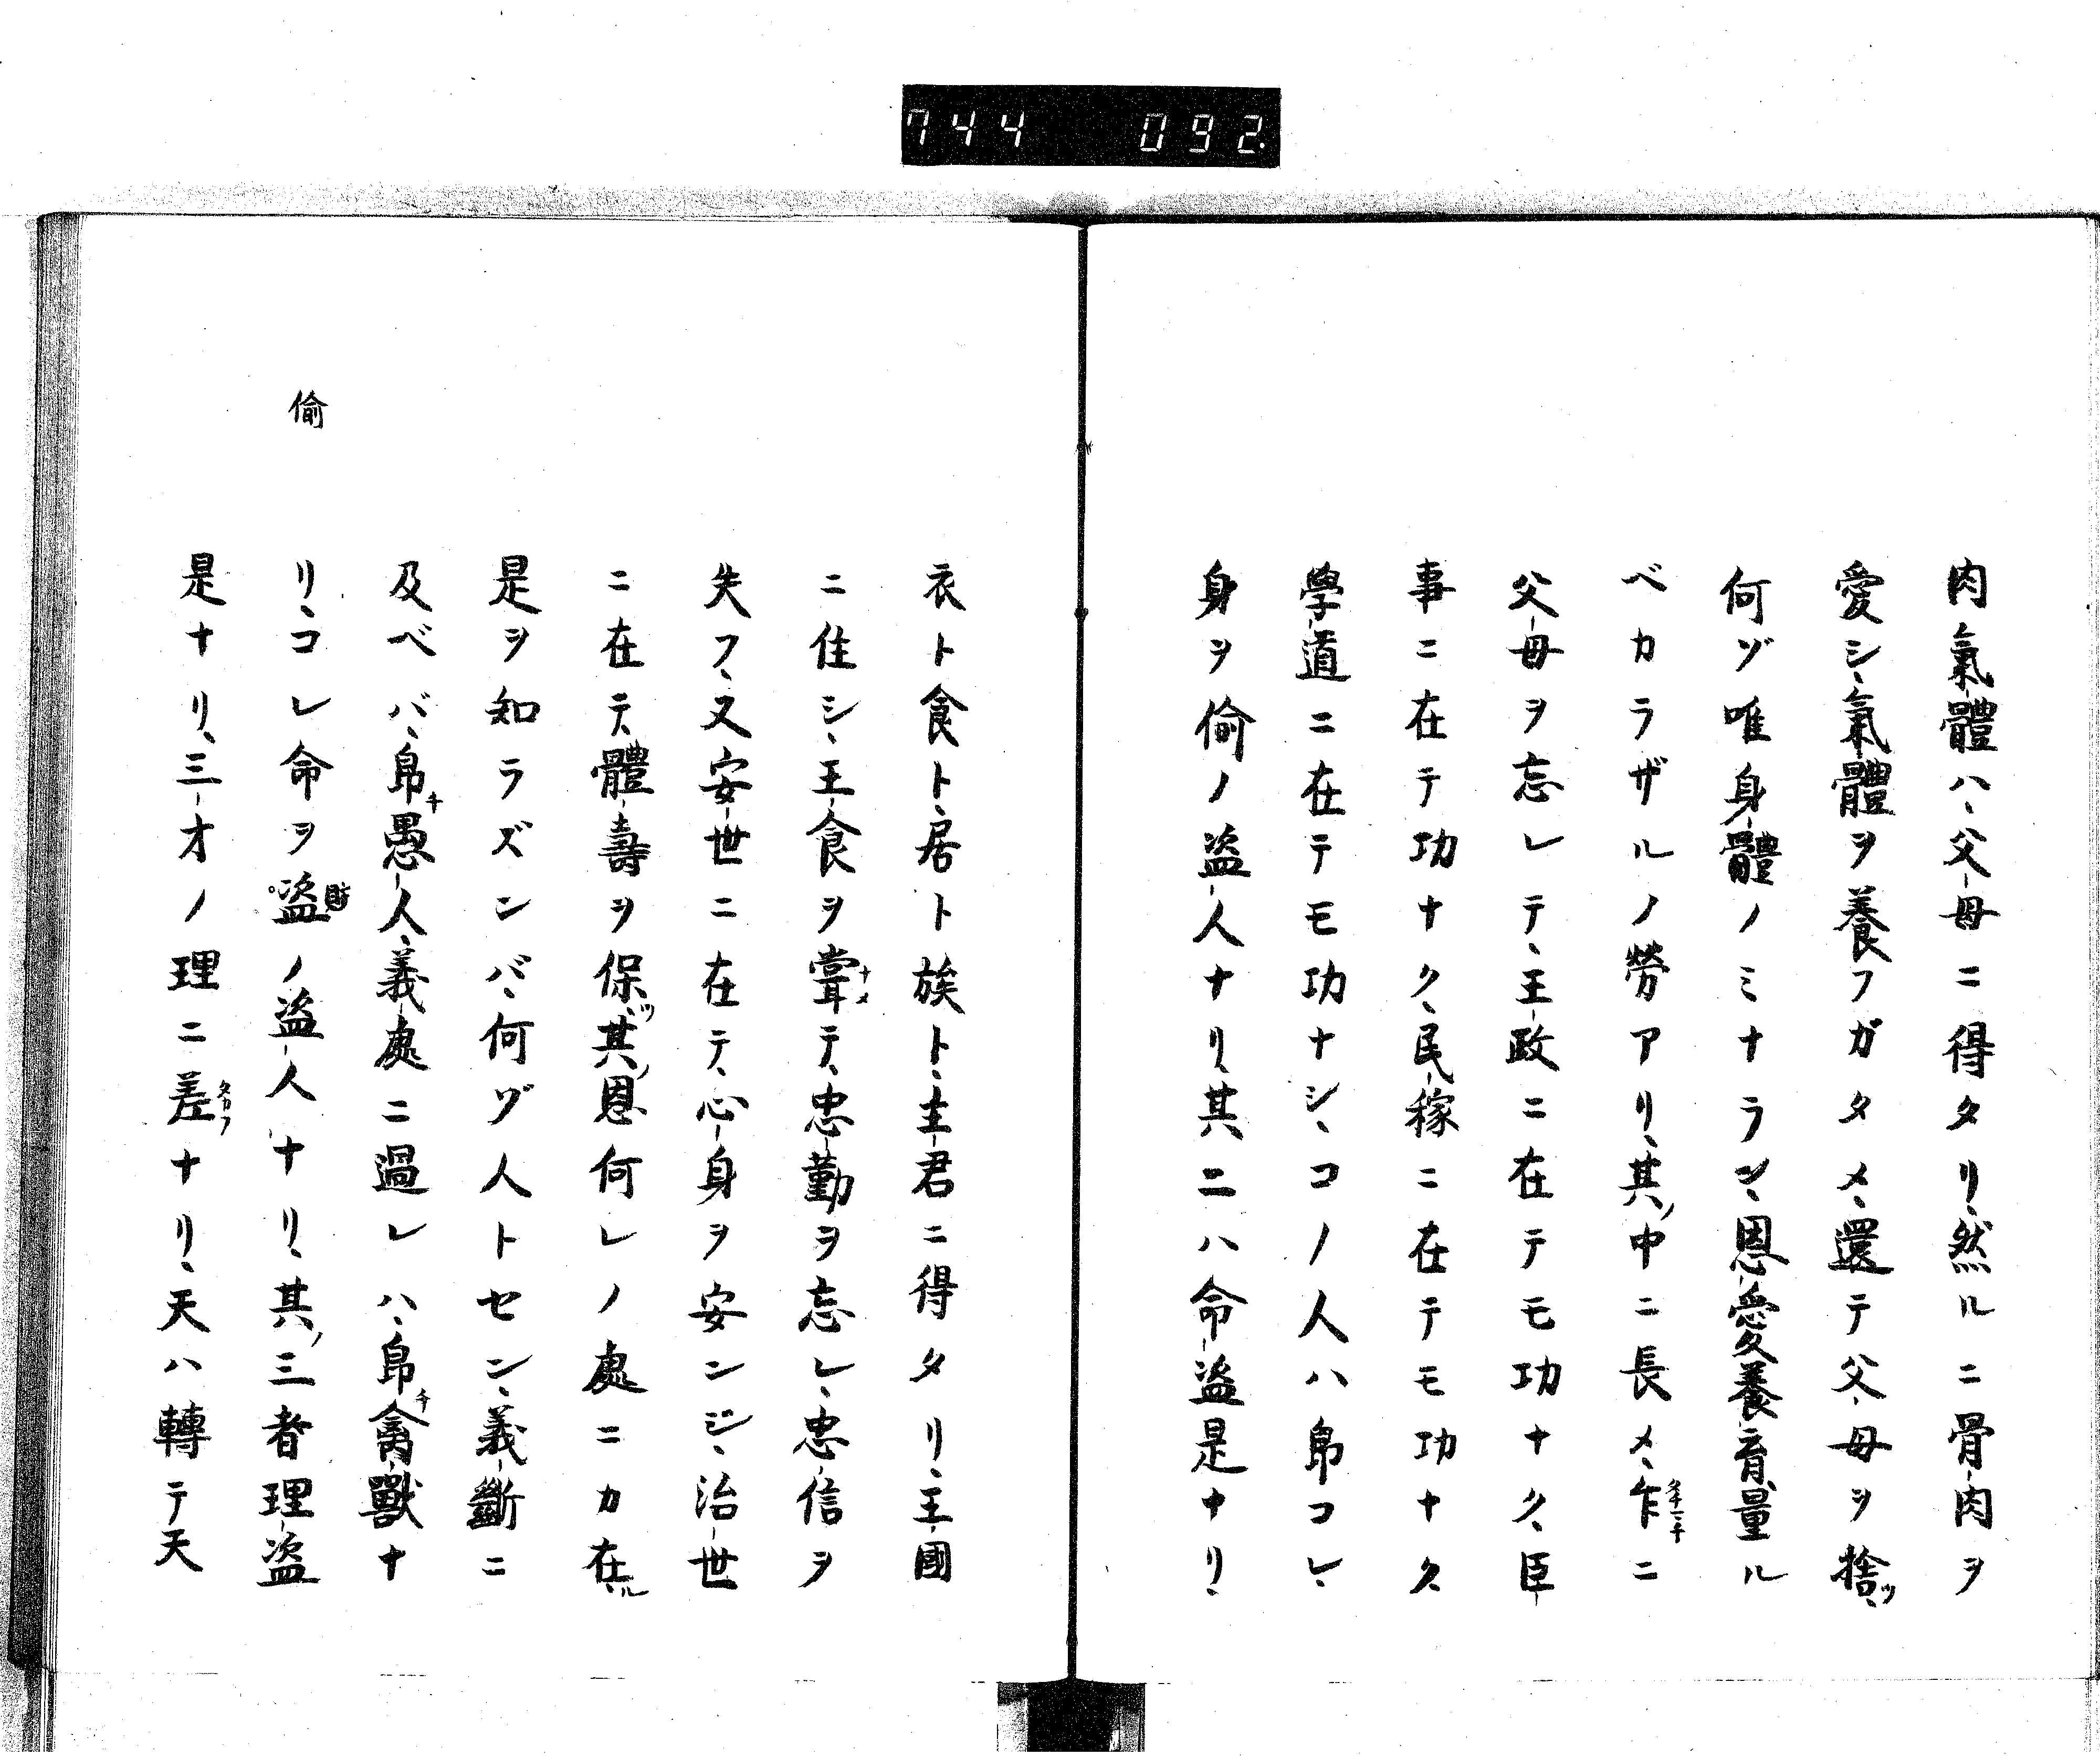 744 092.
肉氣體ハ、父母ニ得タリ、然ルニ骨肉ヲ
愛シ、氣體ヲ養フガタメ、還テ父母ヲ捨ツ、
何ゾ唯身體ノミナラン、恩愛養育、量ル
ベカラザルノ勞アリ、其ノ中ニ長メ、乍タチマチニ
父母ヲ忘レテ、王政ニ在テモ功ナク、臣
事ニ在テ功ナク、民稼ニ在テモ功ナク
學道ニ在テモ功ナシ、コノ人ハ帛コレ、
身ヲ偷ノ盗人ナリ、其二ハ命盗是ナリ、
衣ト食ト、居ト族ト、主君ニ得タリ、王國
ニ住シ、王食ヲ甞ナメテ、忠勤ヲ忘レ、忠信ヲ
失フ、又安世ニ在テ、心身ヲ安ンジ、治世
ニ在テ、體壽ヲ保ツ、其ノ恩何レノ處ニカ在ル、
是ヲ知ラズンバ、何ゾ人トセン、義斷ニ
及ベバ、帛チ愚人、義處ニ過レハ、帛チ禽獸ナ
リ、コレ命ヲ盗ノ盗人ナリ、其ノ三者理盗
偷
是ナリ、三才ノ理ニ差タガフナリ、天ハ轉テ天